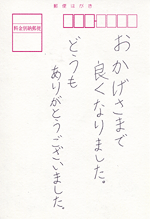 郵便はがき
料金別納郵便
おかげさまで
良くなりました。
どうも
ありがとうございました。